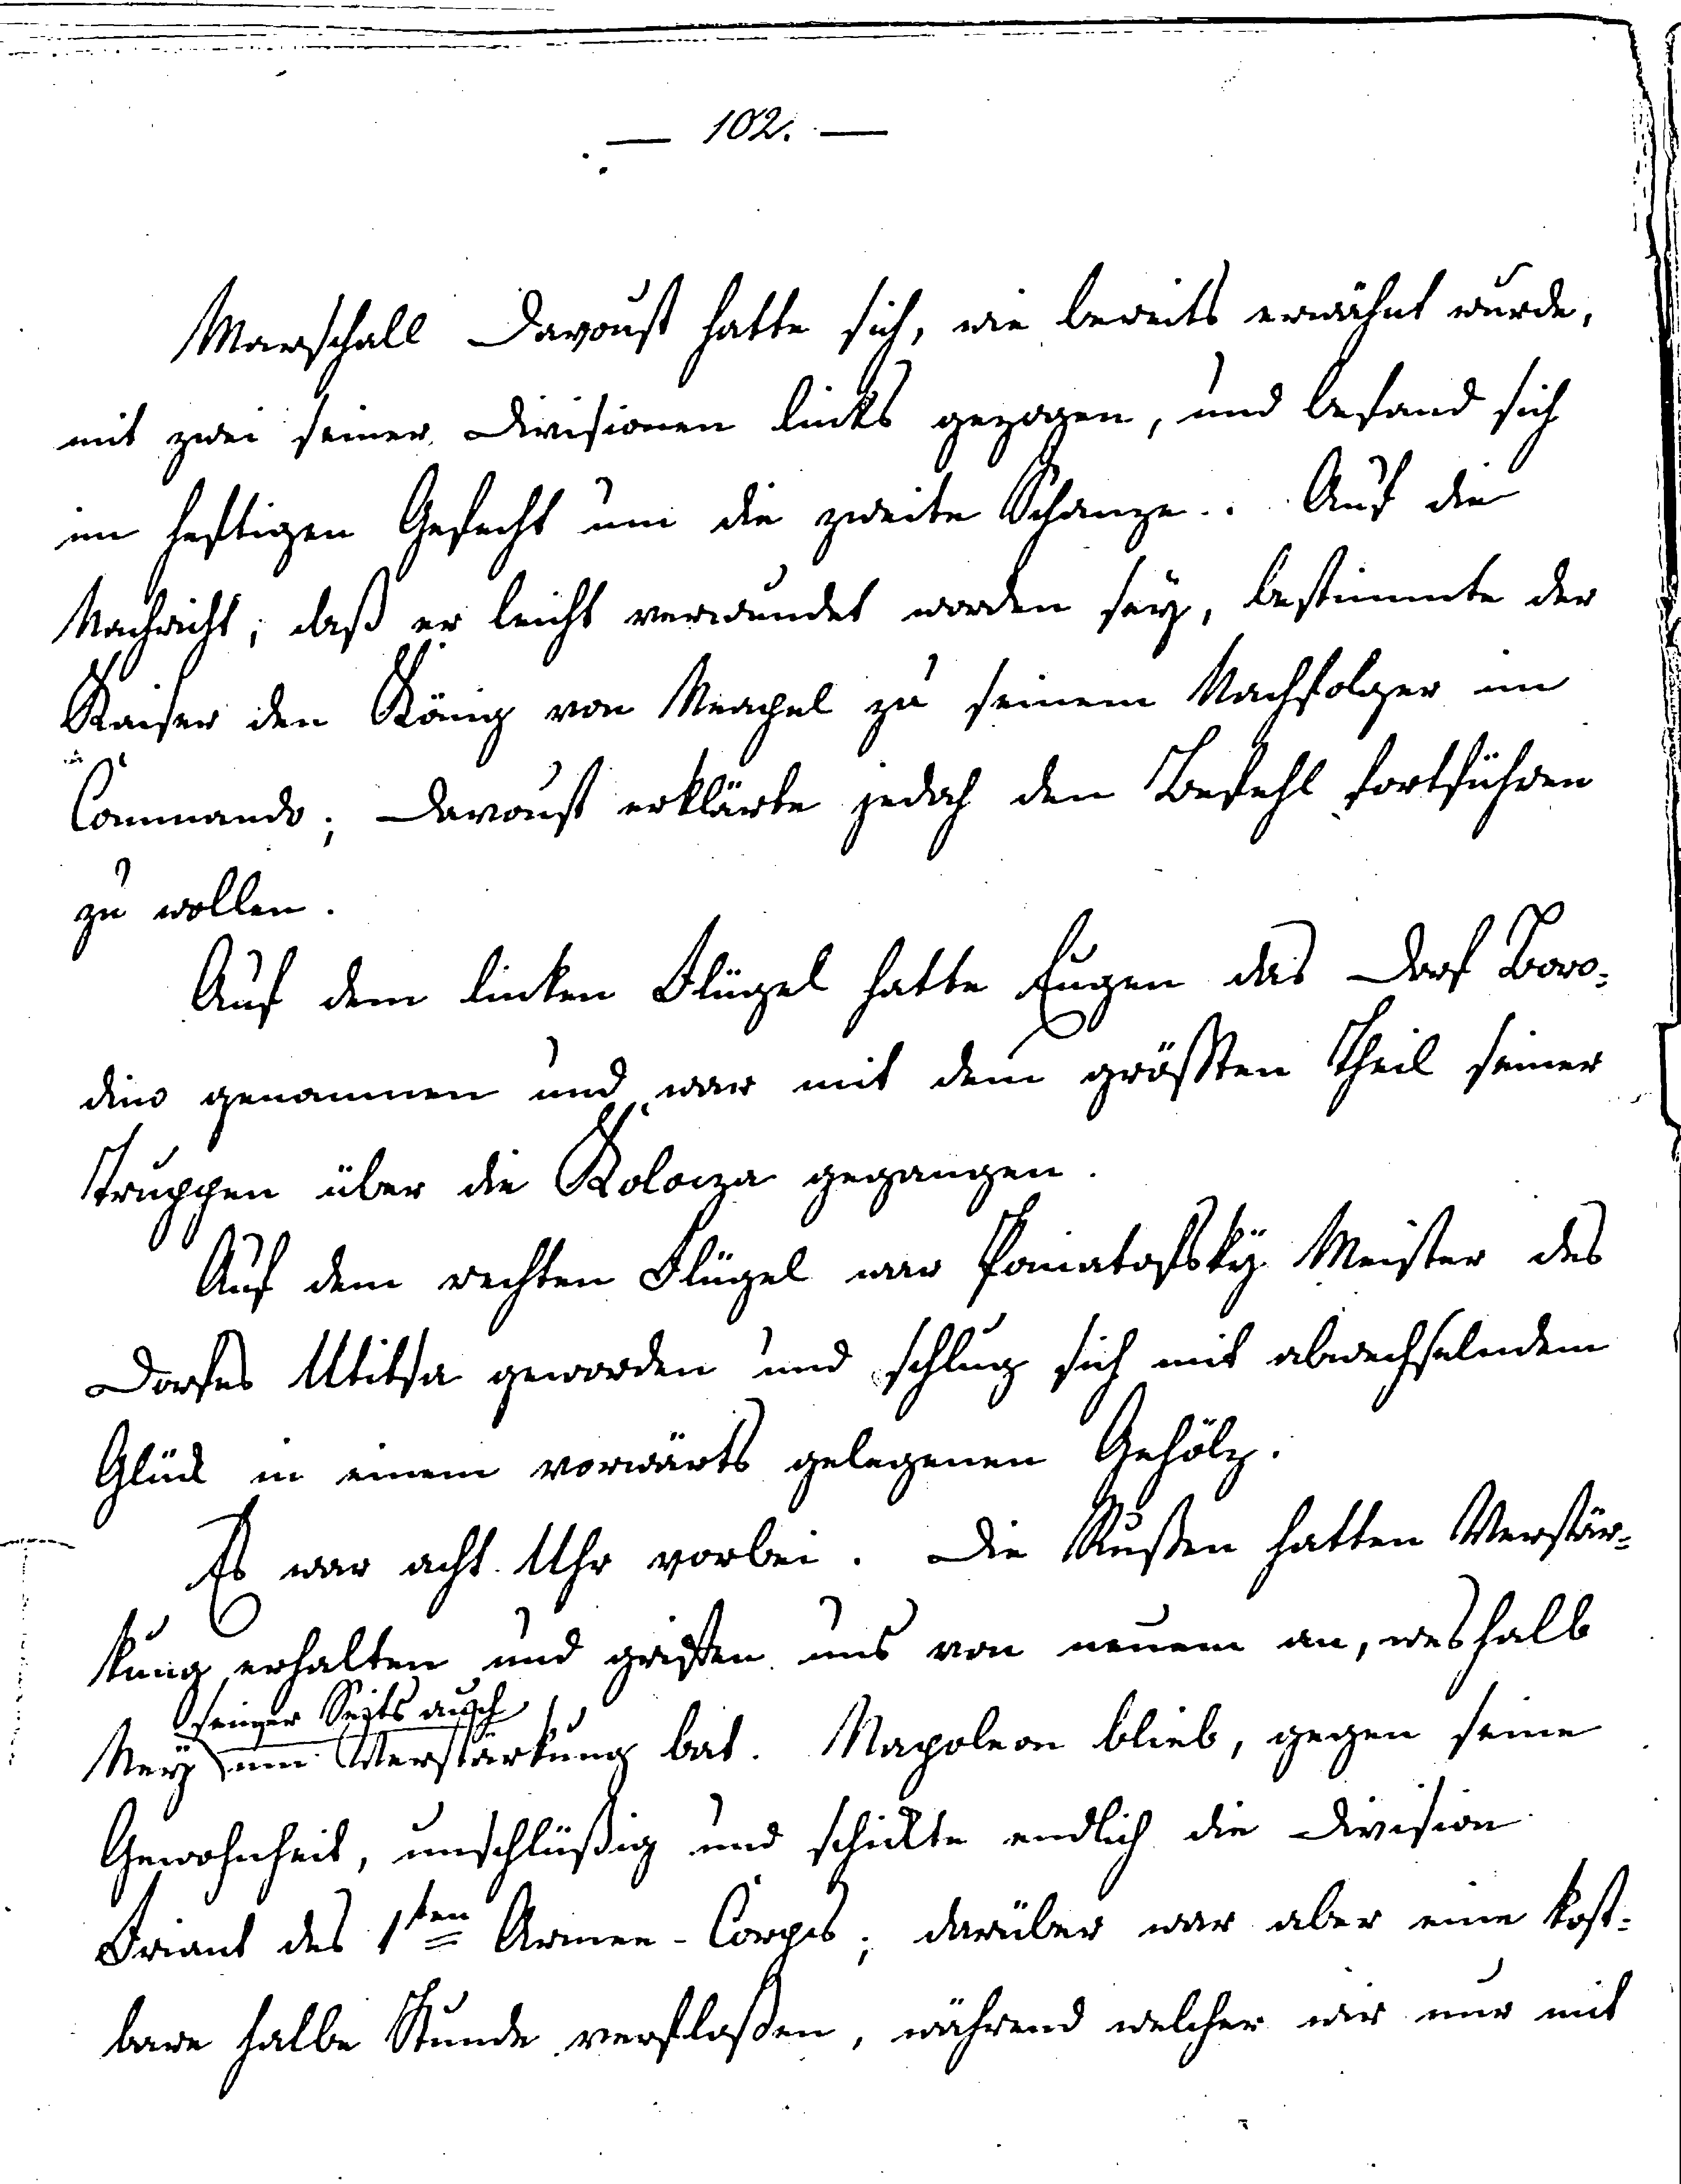 — 102. —
Marschall Davoust hatte sich, wie bereits erwähnt wurde,
mit zwei seiner Divisionen links gezogen, und befand sich
im heftigen Gefecht um die zweite Schanze. Auf die
Nachricht, daß er leicht verwundet worden sey, bestimmte der
Kaiser den König von Neapel zu seinem Nachfolger im
Commando; Davoust erklärte jedoch den Befehl fortführen
zu wollen.
Auf dem linken Flügel hatte Eugen das Dorf Boro-
dino genommen und war mit dem größten Theil seiner
Truppen über die Kolocza gegangen.
Auf dem rechten Flügel war Poniatofsky Meister des
Dorfes Utitsa geworden und schlug sich mit abwechselndem
Glück in einem vorwärts gelegenen Gehölz.
Es war acht Uhr vorbei. Die Rußen hatten Verstär-
kung erhalten und griffen uns von neuem an, weshalb
seiner Seits auch
Ney um Verstärkung bat. Napoleon blieb, gegen seine
Gewohnheit, unschlüßig und schickte endlich die Division
Friant des 1ten Armee-Corps; darüber war aber eine kost-
bare halbe Stunde verfloßen, während welcher wir nur mit